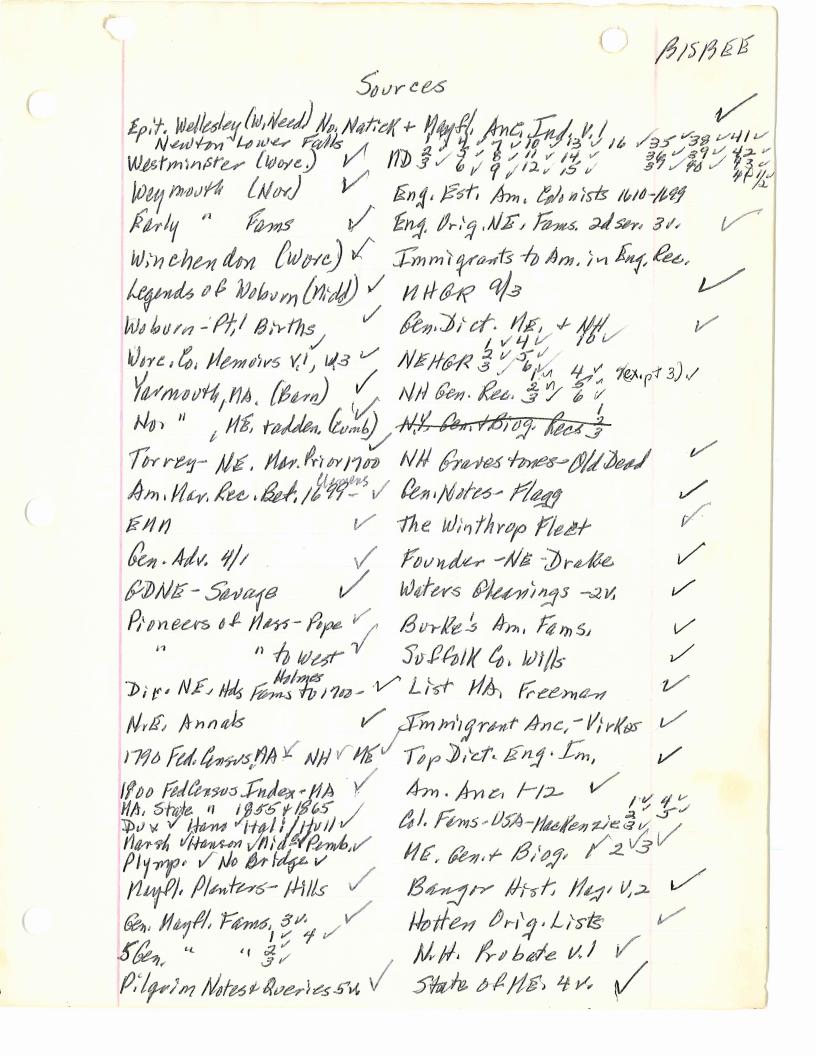 BISBEE
Sources
Epit. Wellesley (W. Need) No. Natick + Mayfl. Anc. Ind. v. 1 ✓
Newton Lower Falls
Westminster (Worc.) ✓
MD 1 ✓ 2 ✓ 3 ✓ 4 ✓ 5 ✓ 6 ✓ 7 ✓ 8 ✓ 9 ✓ 10 ✓ 11 ✓ 12 ✓ 13 ✓ 14 ✓ 15 ✓ 16 ✓ 35 ✓ 36 ✓ 37 ✓ 38 ✓ 39 ✓ 40 ✓ 41 ✓ 42 ✓ 43 ✓
Weymouth (Nor) ✓
Early " Fams ✓
Winchendon (Worc) ✓
Legends of Woburn (Midd) ✓
Woburn - Pt. 1 Births ✓
Worc. Co. Memoirs v. 1, v. 3 ✓
Yarmouth, MA. (Barn) ✓
Nor " , ME. + adden. (Cumb) ✓
Torrey - NE. Mar. Prior 1700 ✓
Clemens
Am. Mar. Rec. Bef. 1699 - ✓
EMM ✓
Gen. Adv. 4/1 ✓
GDNE - Savage ✓
Pioneers of Mass - Pope ✓
" " to West ✓
Holmes
Dir. NE. Hds Fams to 1700 - ✓
N.E. Annals ✓
1790 Fed. Census, MA ✓ NH ✓ ME ✓
1800 Fed Census Index - MA ✓
MA. State " 1855 + 1865
Dux ✓ Hano ✓ Hali / Hull ✓
Marsh ✓ Hanson ✓ Mid ✓ Pemb. ✓
Plymp. ✓ No Bridge ✓
Mayfl. Planters - Hills ✓
Gen. Mayfl. Fams. 3 v. ✓
5 Gen. " " 1 ✓ 2 ✓ 3 ✓ 4 ✓
Pilgrim Notes + Queries 5 v. ✓
Eng. Est. Am. Colonists 1610-1699
Eng. Orig. NE. Fams. 2d ser. 3 v. ✓
Immigrants to Am. in Eng. Rec.
NHGR 9/3 ✓
Gen. Dict. ME. + NH ✓
NEHGR 1 ✓ 2 ✓ 3 ✓ 4 ✓ 5 ✓ 6 ✓ 10 ✓
NH Gen. Rec. 1 ✓ 2 ✓ 3 ✓ 4 ✓ 5 ✓ 6 ✓ 7 (ex. pt 3) ✓
N.Y. Gen. + Biog. Recs 1 2 3
NH Gravestones - Old Dead ✓
Gen. Notes - Flagg ✓
The Winthrop Fleet ✓
Founder - NE - Drake ✓
Waters Gleanings - 2 v. ✓
Burke's Am. Fams. ✓
Suffolk Co. Wills ✓
List MA. Freeman ✓
Immigrant Anc. - Virkus ✓
Top Dict. Eng. Im. ✓
Am. Anc. 1-12 ✓
Col. Fams - USA - MacKenzie 1 ✓ 2 ✓ 3 ✓ 4 ✓ 5 ✓
ME. Gen. + Biog. 1 ✓ 2 ✓ 3 ✓
Bangor Hist. Mag. v. 2 ✓
Hotten Orig. Lists ✓
N.H. Probate v. 1 ✓
State of ME. 4 v. ✓